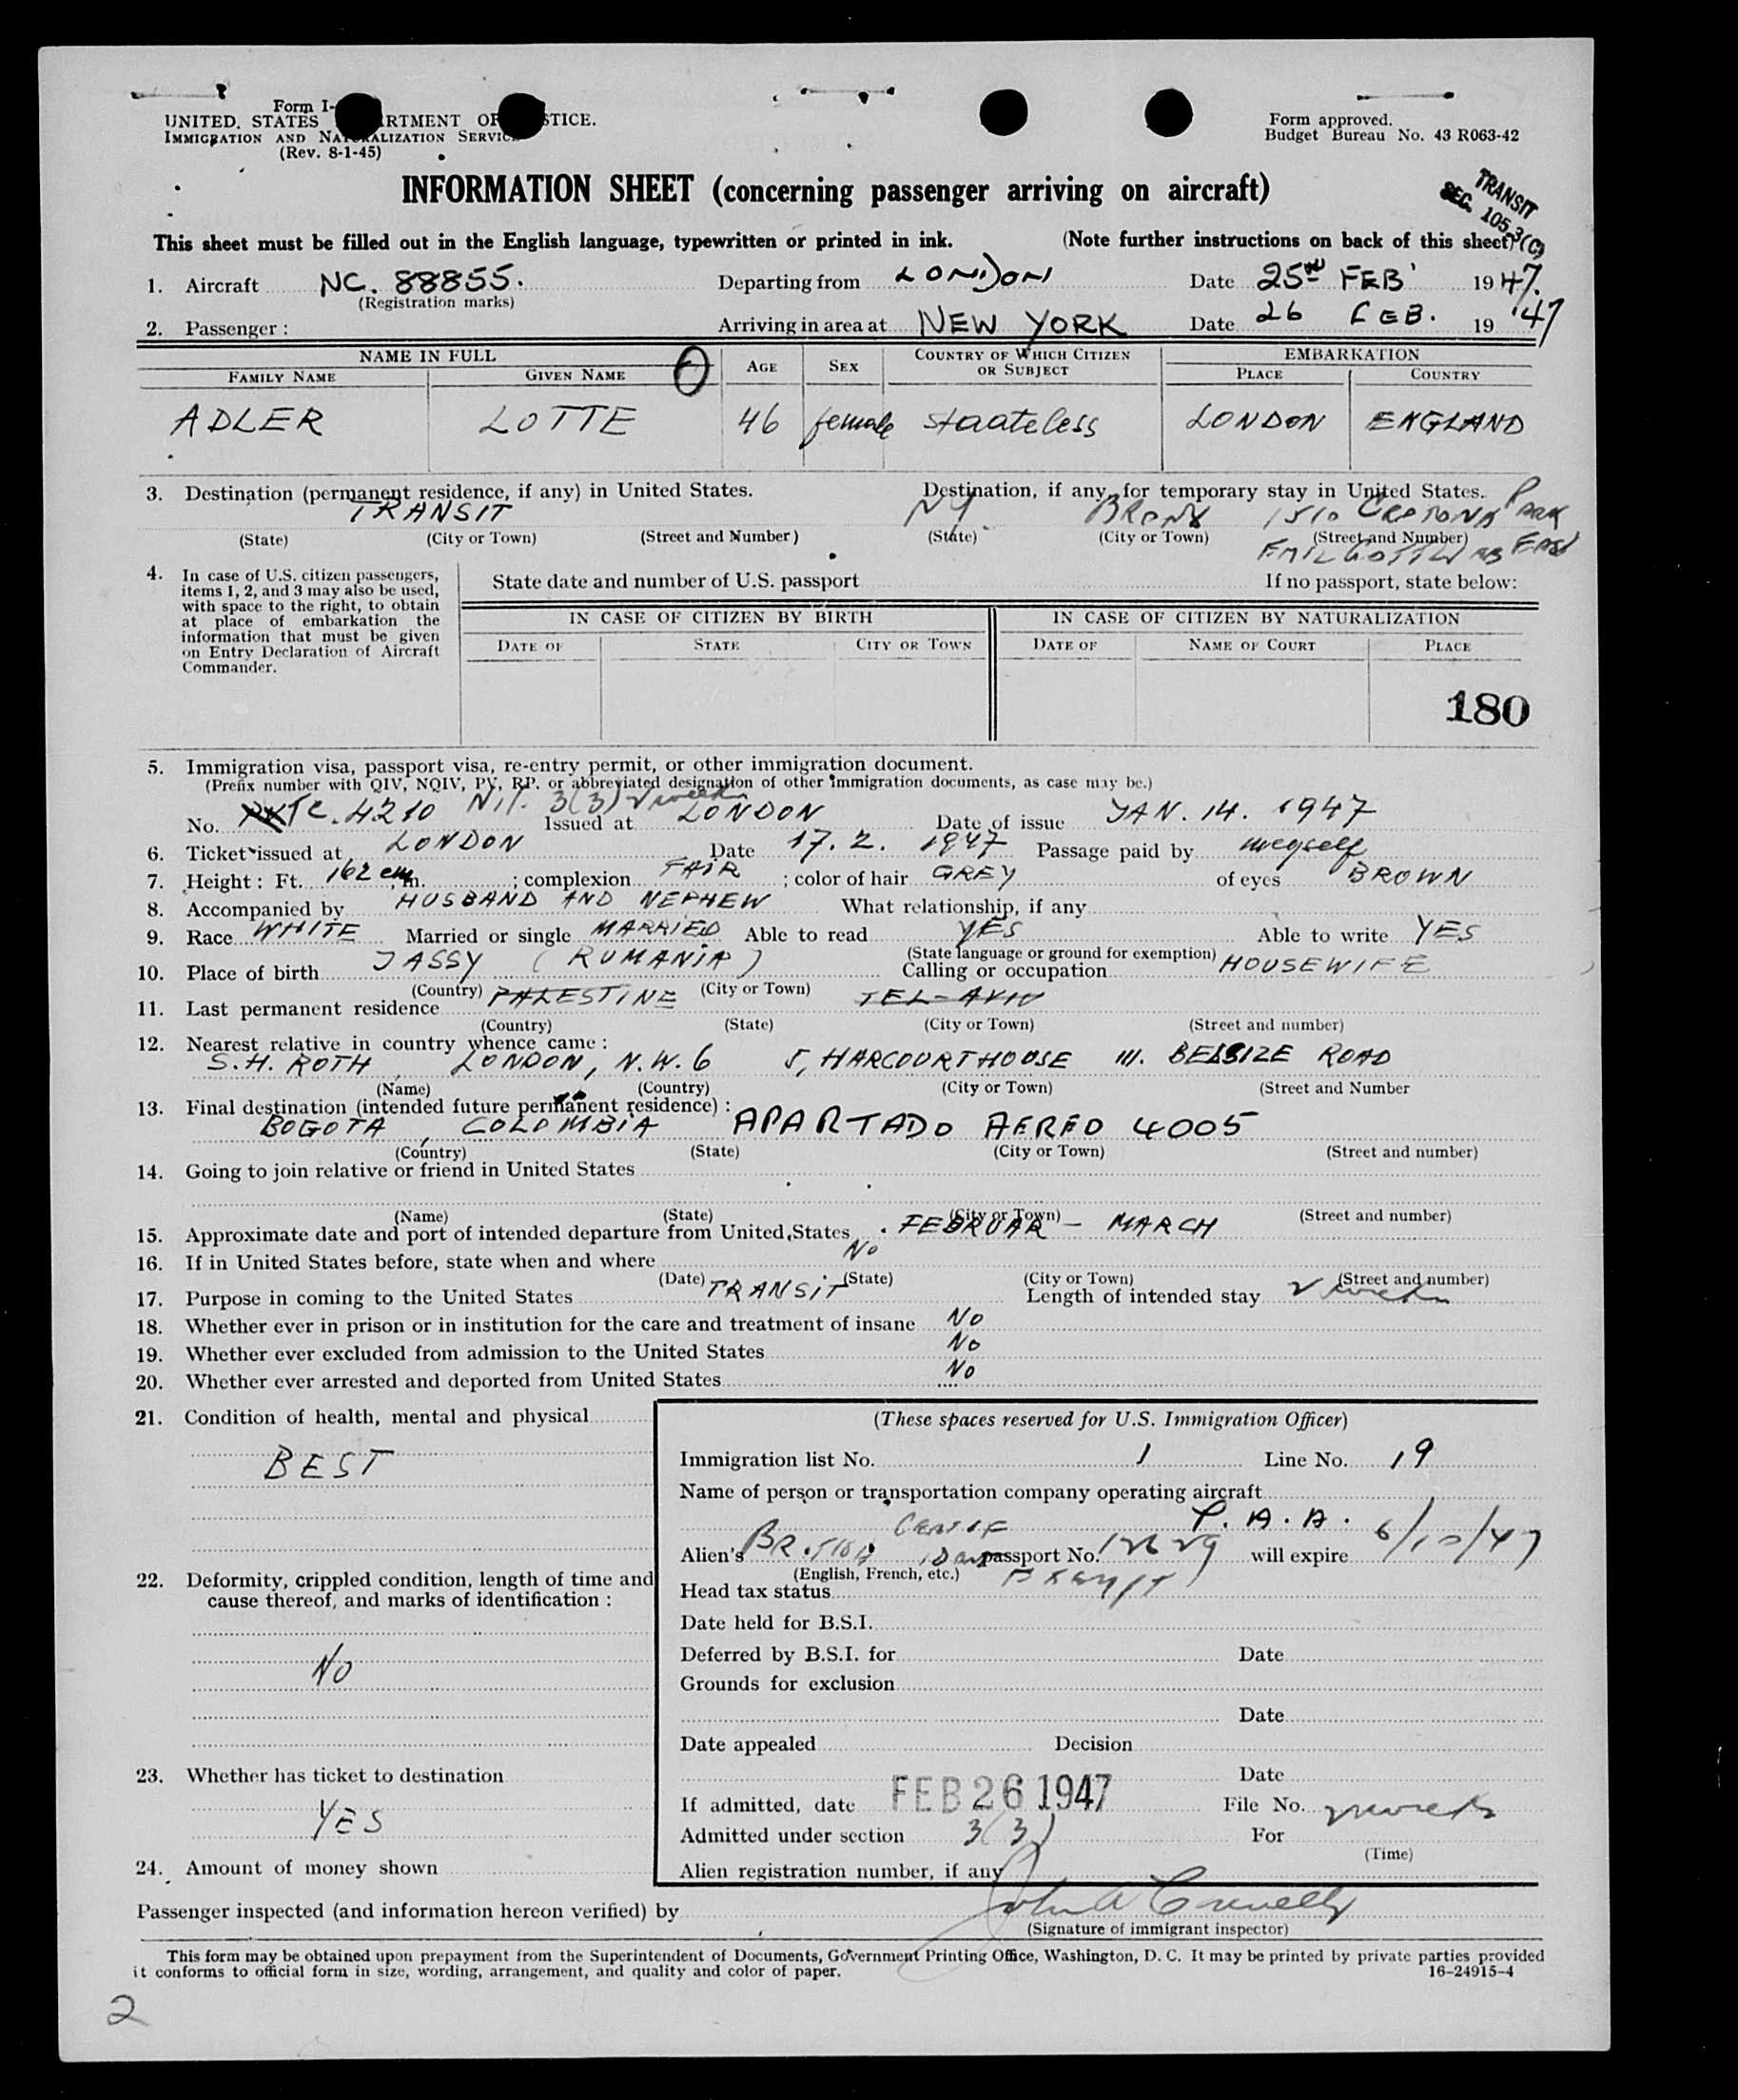 Form I-
UNITED STATES RTMENT OF STICE.
IMMIGRATION AND NATURALIZATION SERVICE
(Rev. 8-1-45)
Form approved.
Budget Bureau No. 43 R063-42
INFORMATION SHEET (concerning passenger arriving on aircraft)
TRANSIT
SEC. 105.3(C)
This sheet must be filled out in the English language, typewritten or printed in ink. (Note further instructions on back of this sheet)
1. Aircraft NC. 88855. Departing from LONDON Date 25 FEB 1947.
(Registration marks)
2. Passenger: Arriving in area at NEW YORK Date 26 FEB. 19 '47
NAME IN FULL AGE SEX COUNTRY OF WHICH CITIZEN OR SUBJECT EMBARKATION
FAMILY NAME GIVEN NAME PLACE COUNTRY
ADLER LOTTE 46 female staateless LONDON ENGLAND
3. Destination (permanent residence, if any) in United States. Destination, if any, for temporary stay in United States.
TRANSIT NY BRONX 1510 CROTONA PARK
(State) (City or Town) (Street and Number) (State) (City or Town) (Street and Number)
EMIL GOTTLIEB EAST
4. In case of U.S. citizen passengers, items 1, 2, and 3 may also be used, with space to the right, to obtain at place of embarkation the information that must be given on Entry Declaration of Aircraft Commander.
State date and number of U.S. passport If no passport, state below:
IN CASE OF CITIZEN BY BIRTH IN CASE OF CITIZEN BY NATURALIZATION
DATE OF STATE CITY OR TOWN DATE OF NAME OF COURT PLACE
180
5. Immigration visa, passport visa, re-entry permit, or other immigration document.
(Prefix number with QIV, NQIV, PV, RP. or abbreviated designation of other immigration documents, as case may be.)
3(3) 2 weeks
No. TC. 4210 Issued at LONDON Date of issue JAN. 14. 1947
6. Ticket issued at LONDON Date 17. 2. 1947 Passage paid by meyself
7. Height: Ft. 162 cm, in. ; complexion FAIR ; color of hair GREY of eyes BROWN
8. Accompanied by HUSBAND AND NEPHEW What relationship, if any
9. Race WHITE Married or single MARRIED Able to read YES Able to write YES
(State language or ground for exemption)
10. Place of birth JASSY (RUMANIA) Calling or occupation HOUSEWIFE
(Country) (City or Town)
11. Last permanent residence PALESTINE TEL-AVIV
(Country) (State) (City or Town) (Street and number)
12. Nearest relative in country whence came:
S.H. ROTH, LONDON, N.W.6 5, HARCOURT HOUSE 111. BELSIZE ROAD
(Name) (Country) (City or Town) (Street and Number
13. Final destination (intended future permanent residence):
BOGOTA, COLOMBIA APARTADO AEREO 4005
(Country) (State) (City or Town) (Street and number)
14. Going to join relative or friend in United States
(Name) (State) (City or Town) (Street and number)
15. Approximate date and port of intended departure from United States FEBRUAR - MARCH
16. If in United States before, state when and where No
(Date) (State) (City or Town) (Street and number)
17. Purpose in coming to the United States TRANSIT Length of intended stay 2 weeks
18. Whether ever in prison or in institution for the care and treatment of insane No
19. Whether ever excluded from admission to the United States No
20. Whether ever arrested and deported from United States No
21. Condition of health, mental and physical
BEST
22. Deformity, crippled condition, length of time and cause thereof, and marks of identification:
No
23. Whether has ticket to destination
YES
24. Amount of money shown
(These spaces reserved for U.S. Immigration Officer)
Immigration list No. 1 Line No. 19
Name of person or transportation company operating aircraft
P. A. A.
Alien's BRITISH passport No. 12629 will expire 6/10/47
(English, French, etc.)
Head tax status EXEMPT
Date held for B.S.I.
Deferred by B.S.I. for Date
Grounds for exclusion
Date
Date appealed Decision
Date
If admitted, date FEB 26 1947 File No. 2 weeks
Admitted under section 3(3) For
(Time)
Alien registration number, if any
Passenger inspected (and information hereon verified) by
(Signature of immigrant inspector)
This form may be obtained upon prepayment from the Superintendent of Documents, Government Printing Office, Washington, D. C. It may be printed by private parties provided
it conforms to official form in size, wording, arrangement, and quality and color of paper. 16-24915-4
2